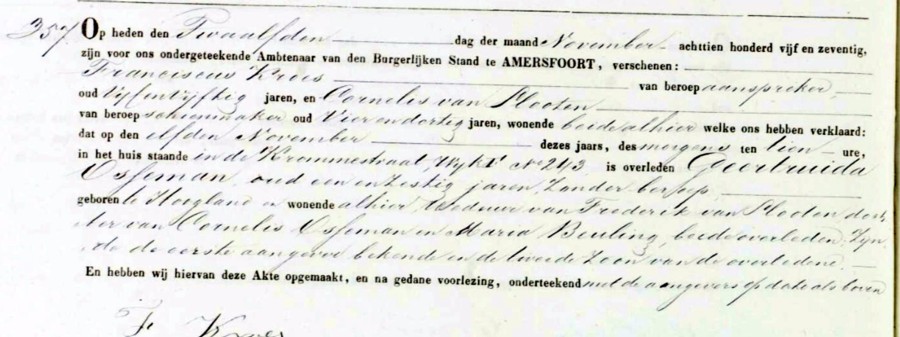 357 Op heden den Twaalfden dag der maand November achttien honderd vijf en zeventig,
zijn voor ons ondergeteekende Ambtenaar van den Burgerlijken Stand te AMERSFOORT, verschenen:
Franciscus Kroes van beroep aanspreker,
oud vijfenvijftig jaren, en Cornelis van Plooten
van beroep schoenmaker oud Vier en dertig jaren, wonende beide alhier welke ons hebben verklaard:
dat op den elfden November dezes jaars, des morgens ten tien ure,
in het huis staande in de Krommestraat, Wijk No 243 is overleden Geertruida
Osseman, oud een en zestig jaren, Zonder beroep,
geboren te Hoogland en wonende alhier, Weduwe van Frederik van Plooten doch,
ter van Cornelis Osseman en Maria Beuling, beide overleden, Zyn,
de de eerste aangever bekende en de tweede Zoon van de overledene.
En hebben wij hiervan deze Akte opgemaakt, en na gedane voorlezing, onderteekend met de aangevers op dato als boven
F. Kroes